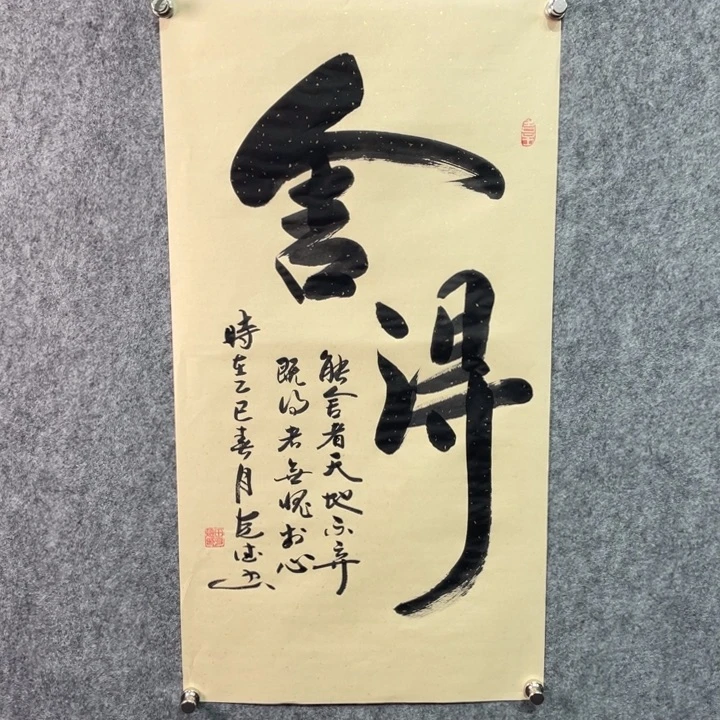 舍得
能舍者天地不弃
既得者無愧於心
時在乙巳春月